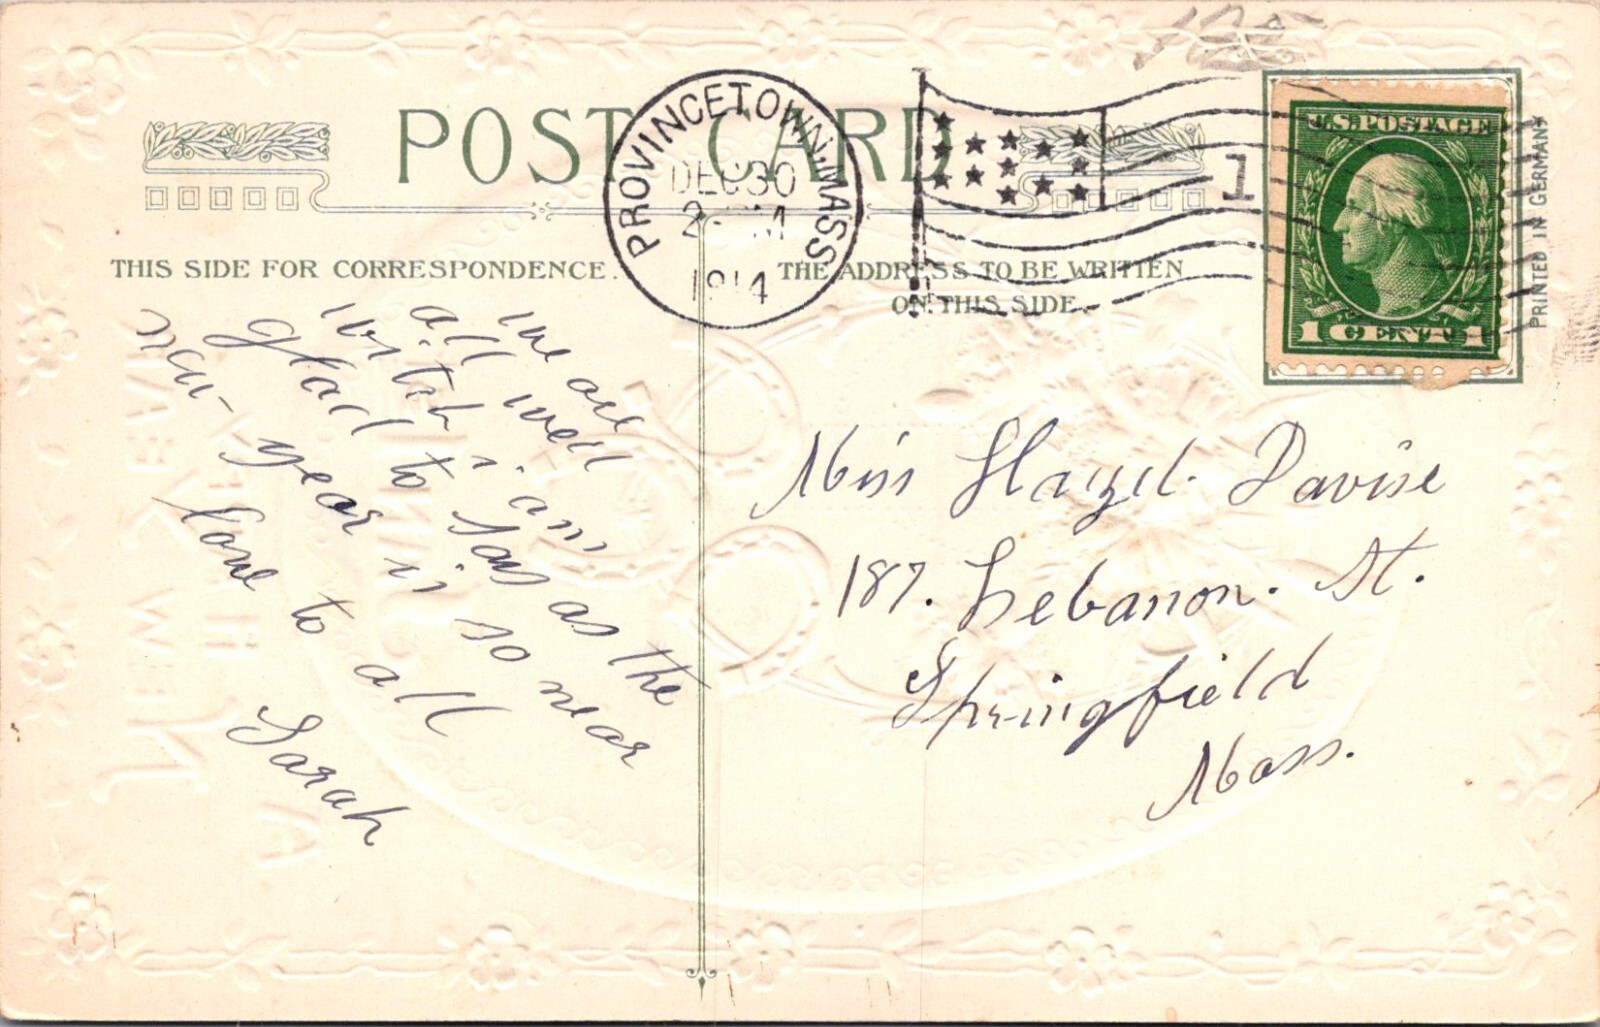 POST CARD
THIS SIDE FOR CORRESPONDENCE.
THE ADDRESS TO BE WRITTEN
ON THIS SIDE.
PROVINCETOWN, MASS
DEC 30
1914
1
U.S. POSTAGE
1 CENT 1
PRINTED IN GERMANY
we are
all well
i am
glad to say as the
new-year is so near
love to all
Sarah
Miss Hazel. Davise
187. Lebanon. St.
Springfield
Mass.
A
NEW YEAR